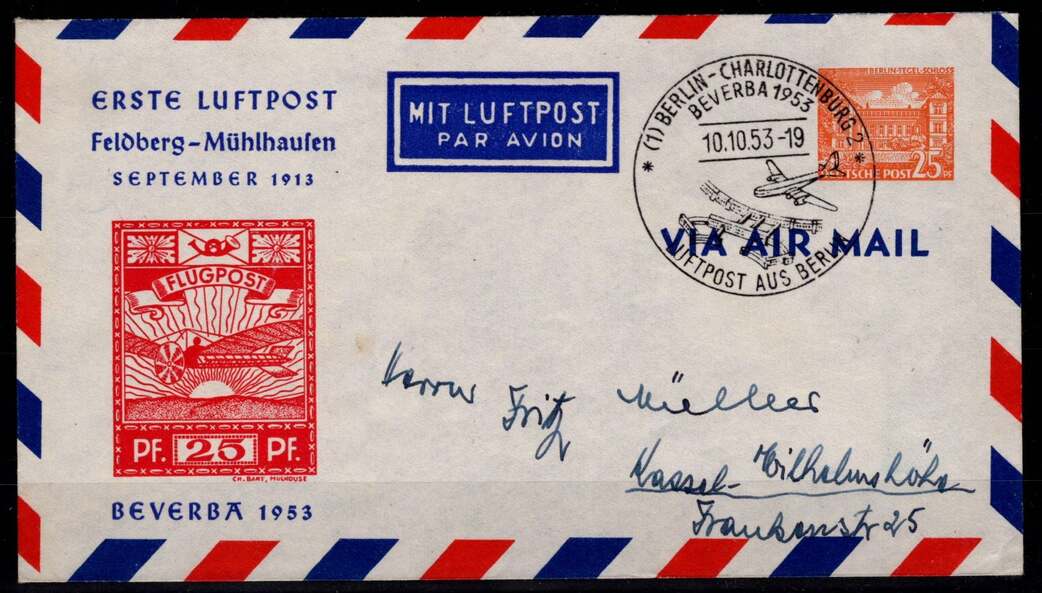 ERSTE LUFTPOST
Feldberg-Mühlhausen
SEPTEMBER 1913
FLUGPOST
PF. 25 PF.
CH. BART, MULHOUSE
BEVERBA 1953
MIT LUFTPOST
PAR AVION
* (1) BERLIN-CHARLOTTENBURG 2 *
BEVERBA 1953
10.10.53-19
LUFTPOST AUS BERLIN
BERLIN-TEGEL-SCHLOSS
TSCHE POST 25 PF
VIA AIR MAIL
Herrn Fritz Müller
Kassel-Wilhelmshöhe
Frankenstr 25